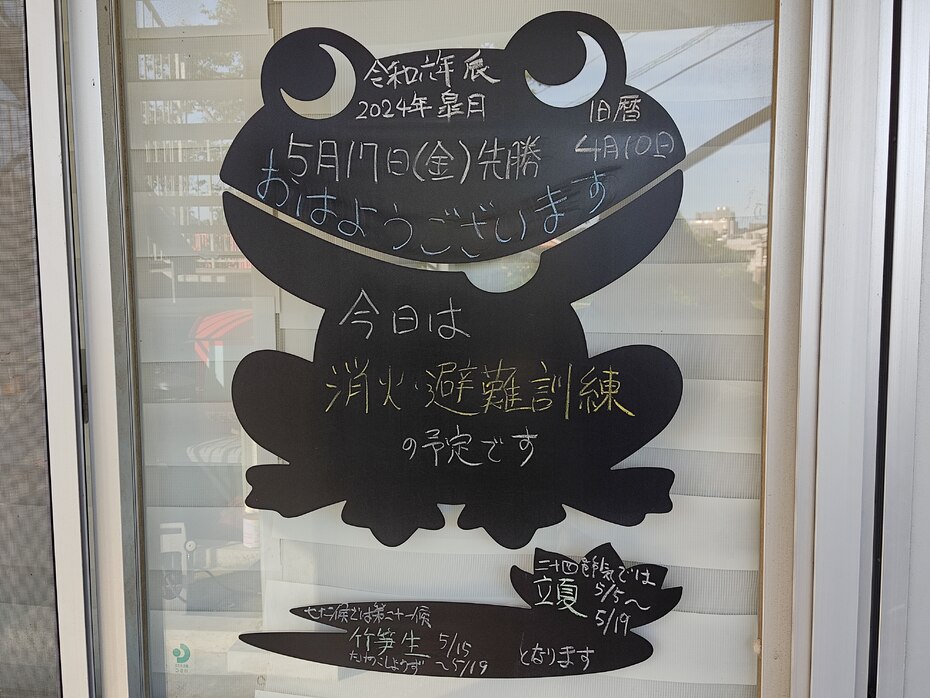 令和六年 辰
2024年 皐月
旧暦
4月10日
5月17日(金)先勝
おはようございます
今日は
消火・避難訓練
の予定です
二十四節気では
立夏 5/5～
5/19
七十二候では第二十一候
竹笋生 5/15
たけのこしょうず ～5/19
となります